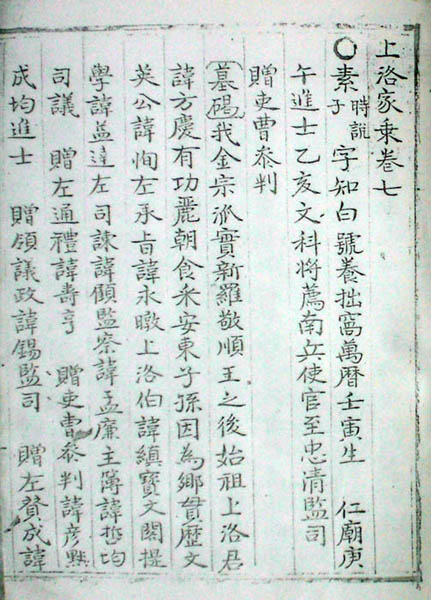 上洛家乘卷七
○素時說子字知白號養拙窩萬曆壬寅生 仁廟庚
午進士乙亥文科將薦南兵使官至忠清監司
贈吏曹叅判
墓碣我金宗派實新羅敬順王之後始祖上洛君
諱方慶有功麗朝食采安東子孫因為鄉貫歷文
英公諱恂左承旨諱永暾上洛伯諱縝寶文閣提
學諱益達左司諫諱顧監察諱孟廉主簿諱哲均
司議 贈左通禮諱壽亨 贈吏曹叅判諱彦默
成均進士 贈領議政諱錫監司 贈左賛成諱